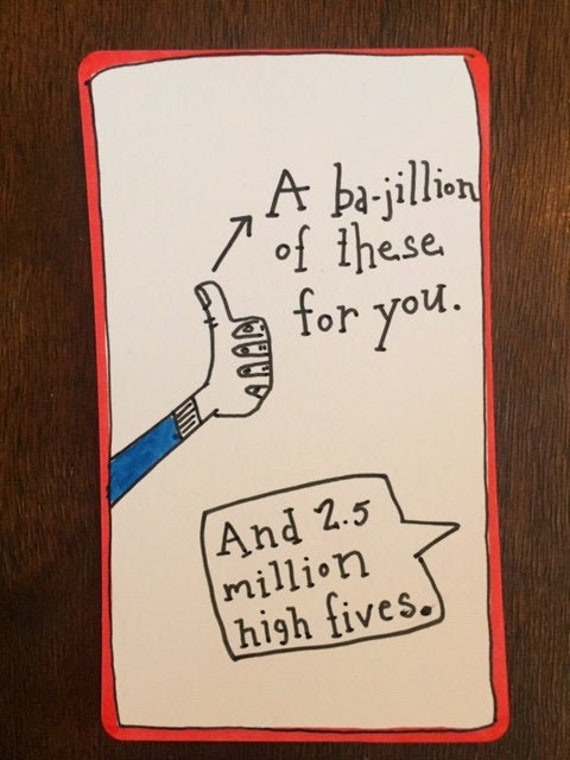 A ba-jillion
of these
for you.
And 2.5
million
high fives.